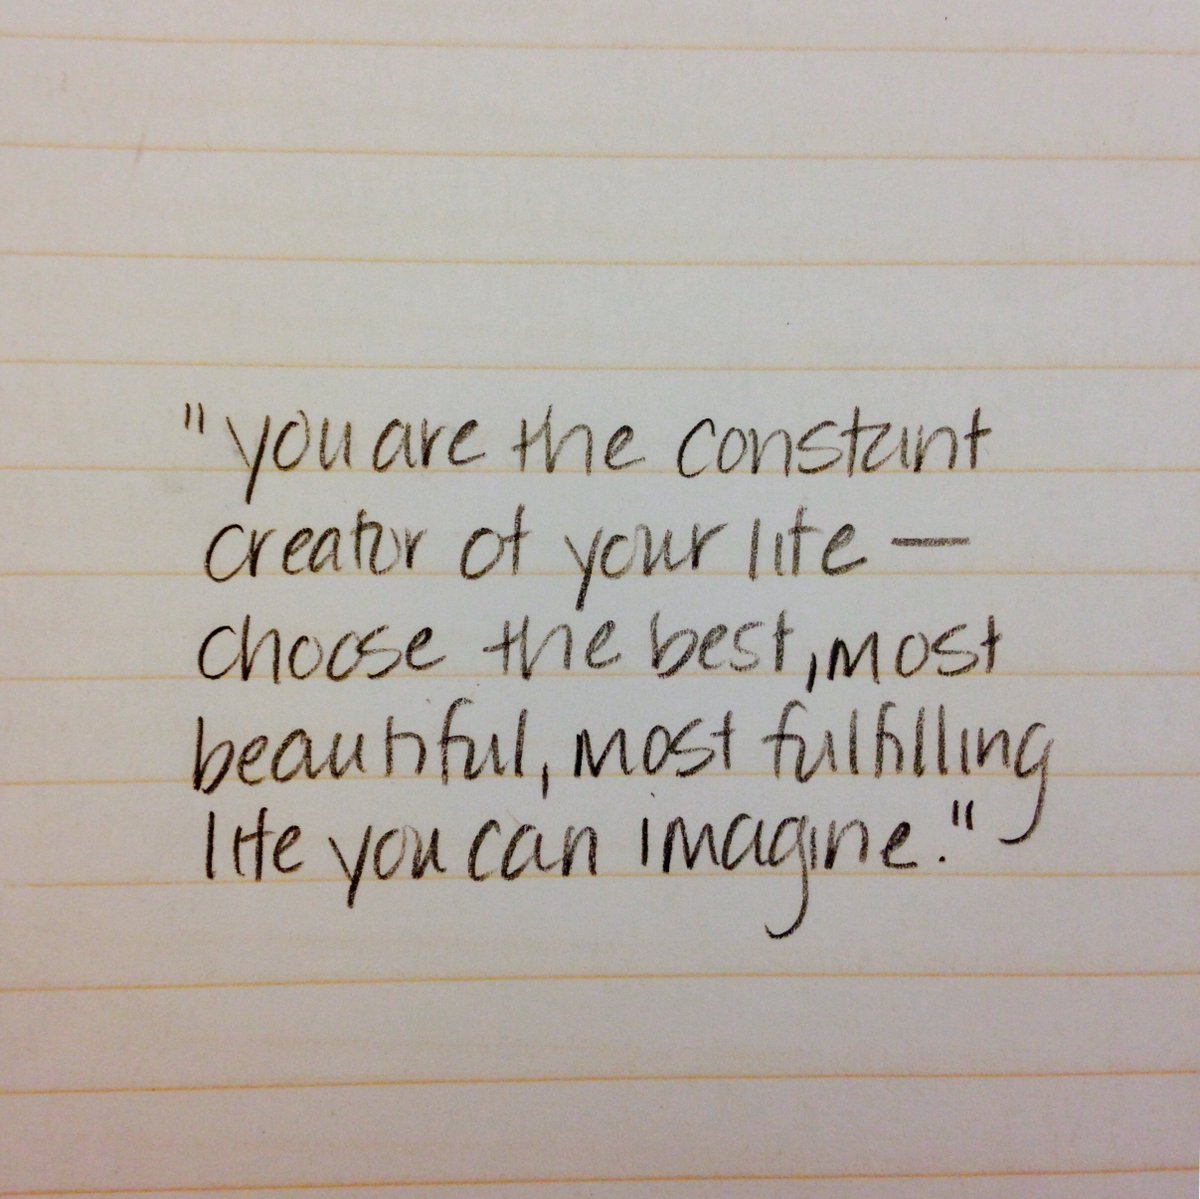 "you are the constant
creator of your life —
choose the best, most
beautiful, most fulfilling
life you can imagine."